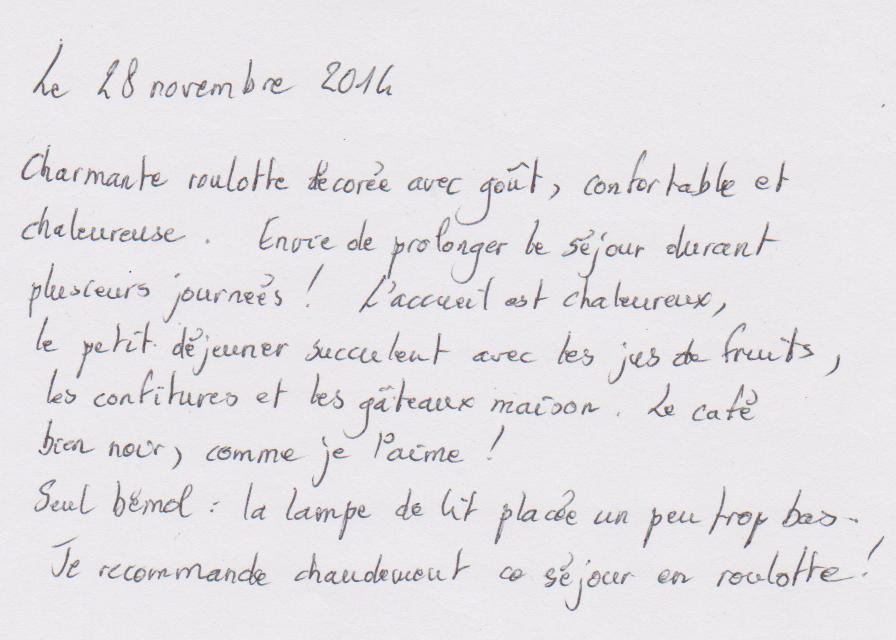 Le 28 novembre 2014
Charmante roulotte décorée avec goût, confortable et
chaleureuse. Envie de prolonger le séjour durant
plusieurs journées ! L'accueil est chaleureux,
le petit déjeuner succulent avec les jus de fruits,
les confitures et les gâteaux maison. Le café
bien noir, comme je l'aime !
Seul bémol : la lampe de lit placée un peu trop bas.
Je recommande chaudement ce séjour en roulotte !